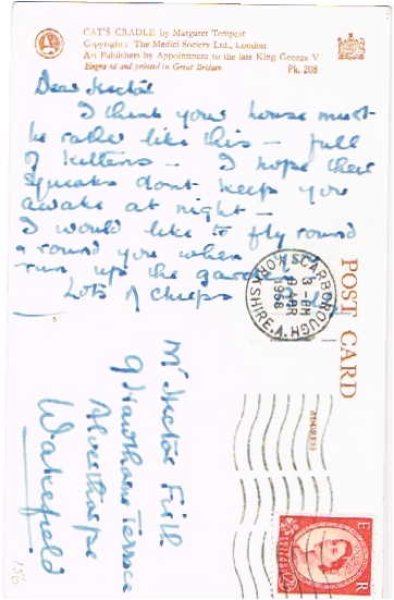 CAT'S CRADLE by Margaret Tempest
Copyright: The Medici Society Ltd., London
Art Publishers by Appointment to the late King George V
Engraved and printed in Great Britain Pk. 208
Dear Hector
I think your house must
be rather like this – full
of kittens – I hope their
squeaks dont keep you
awake at night –
I would like to fly round
& round you when
run up the garden
Lots of cheeps
POST CARD
SCARBOROUGH
YORKSHIRE. A.
3 - PM
APR
1958
Mr Hector Firth
9 Hawthorne Terrace
Alverthorpe
Wakefield
E R